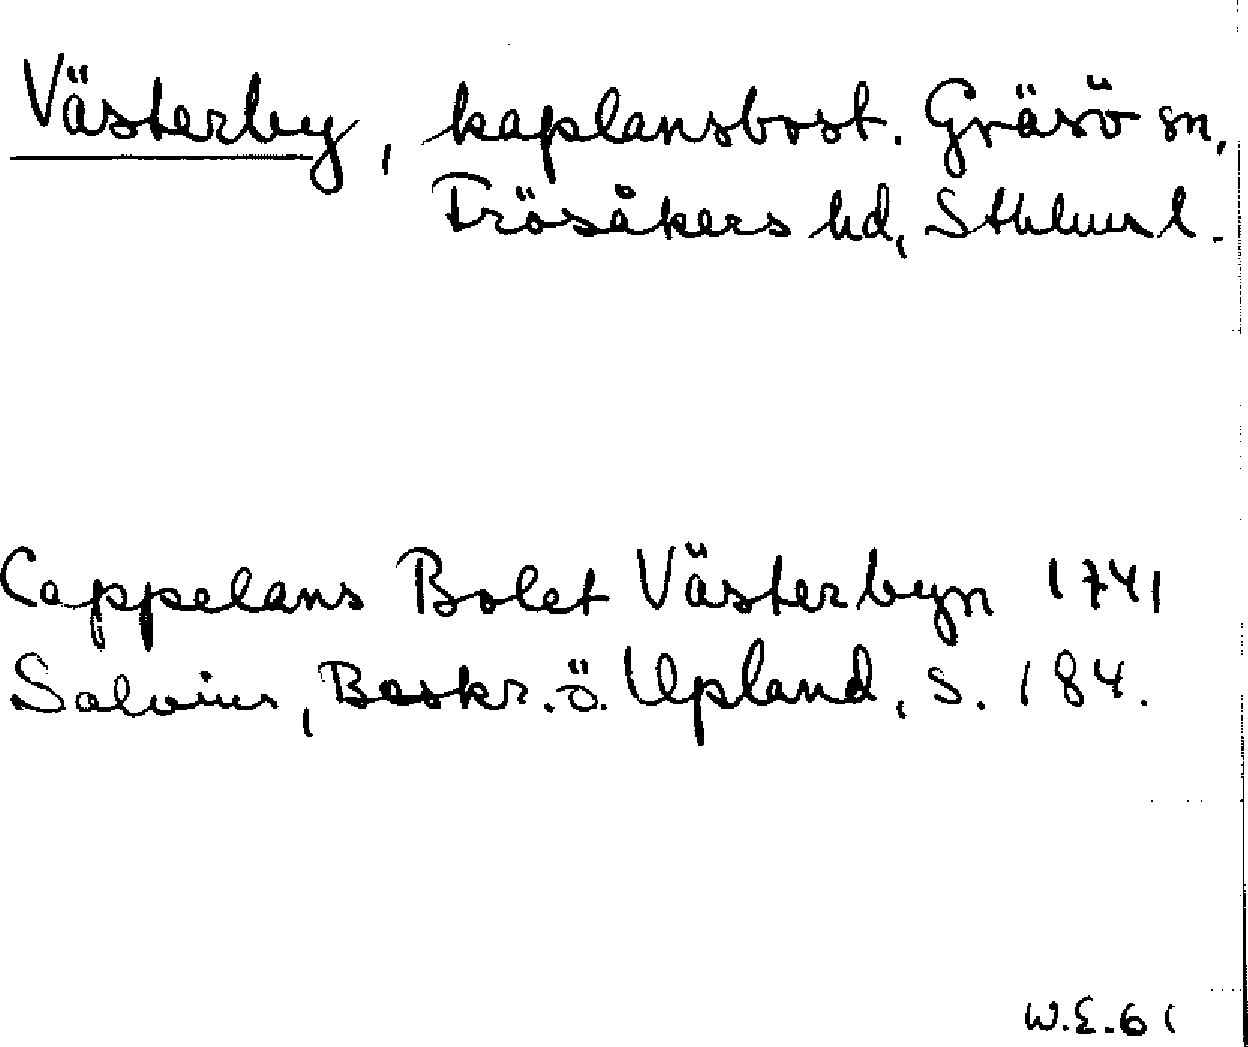 Västerby, kaplansbost. Gräsö sn,
Frösåkers hd, Sthlms l.
Cappelans Bolet Västerbyn 1741
Salvius, Beskr. ö. Upland, s. 184.
W.E. 61